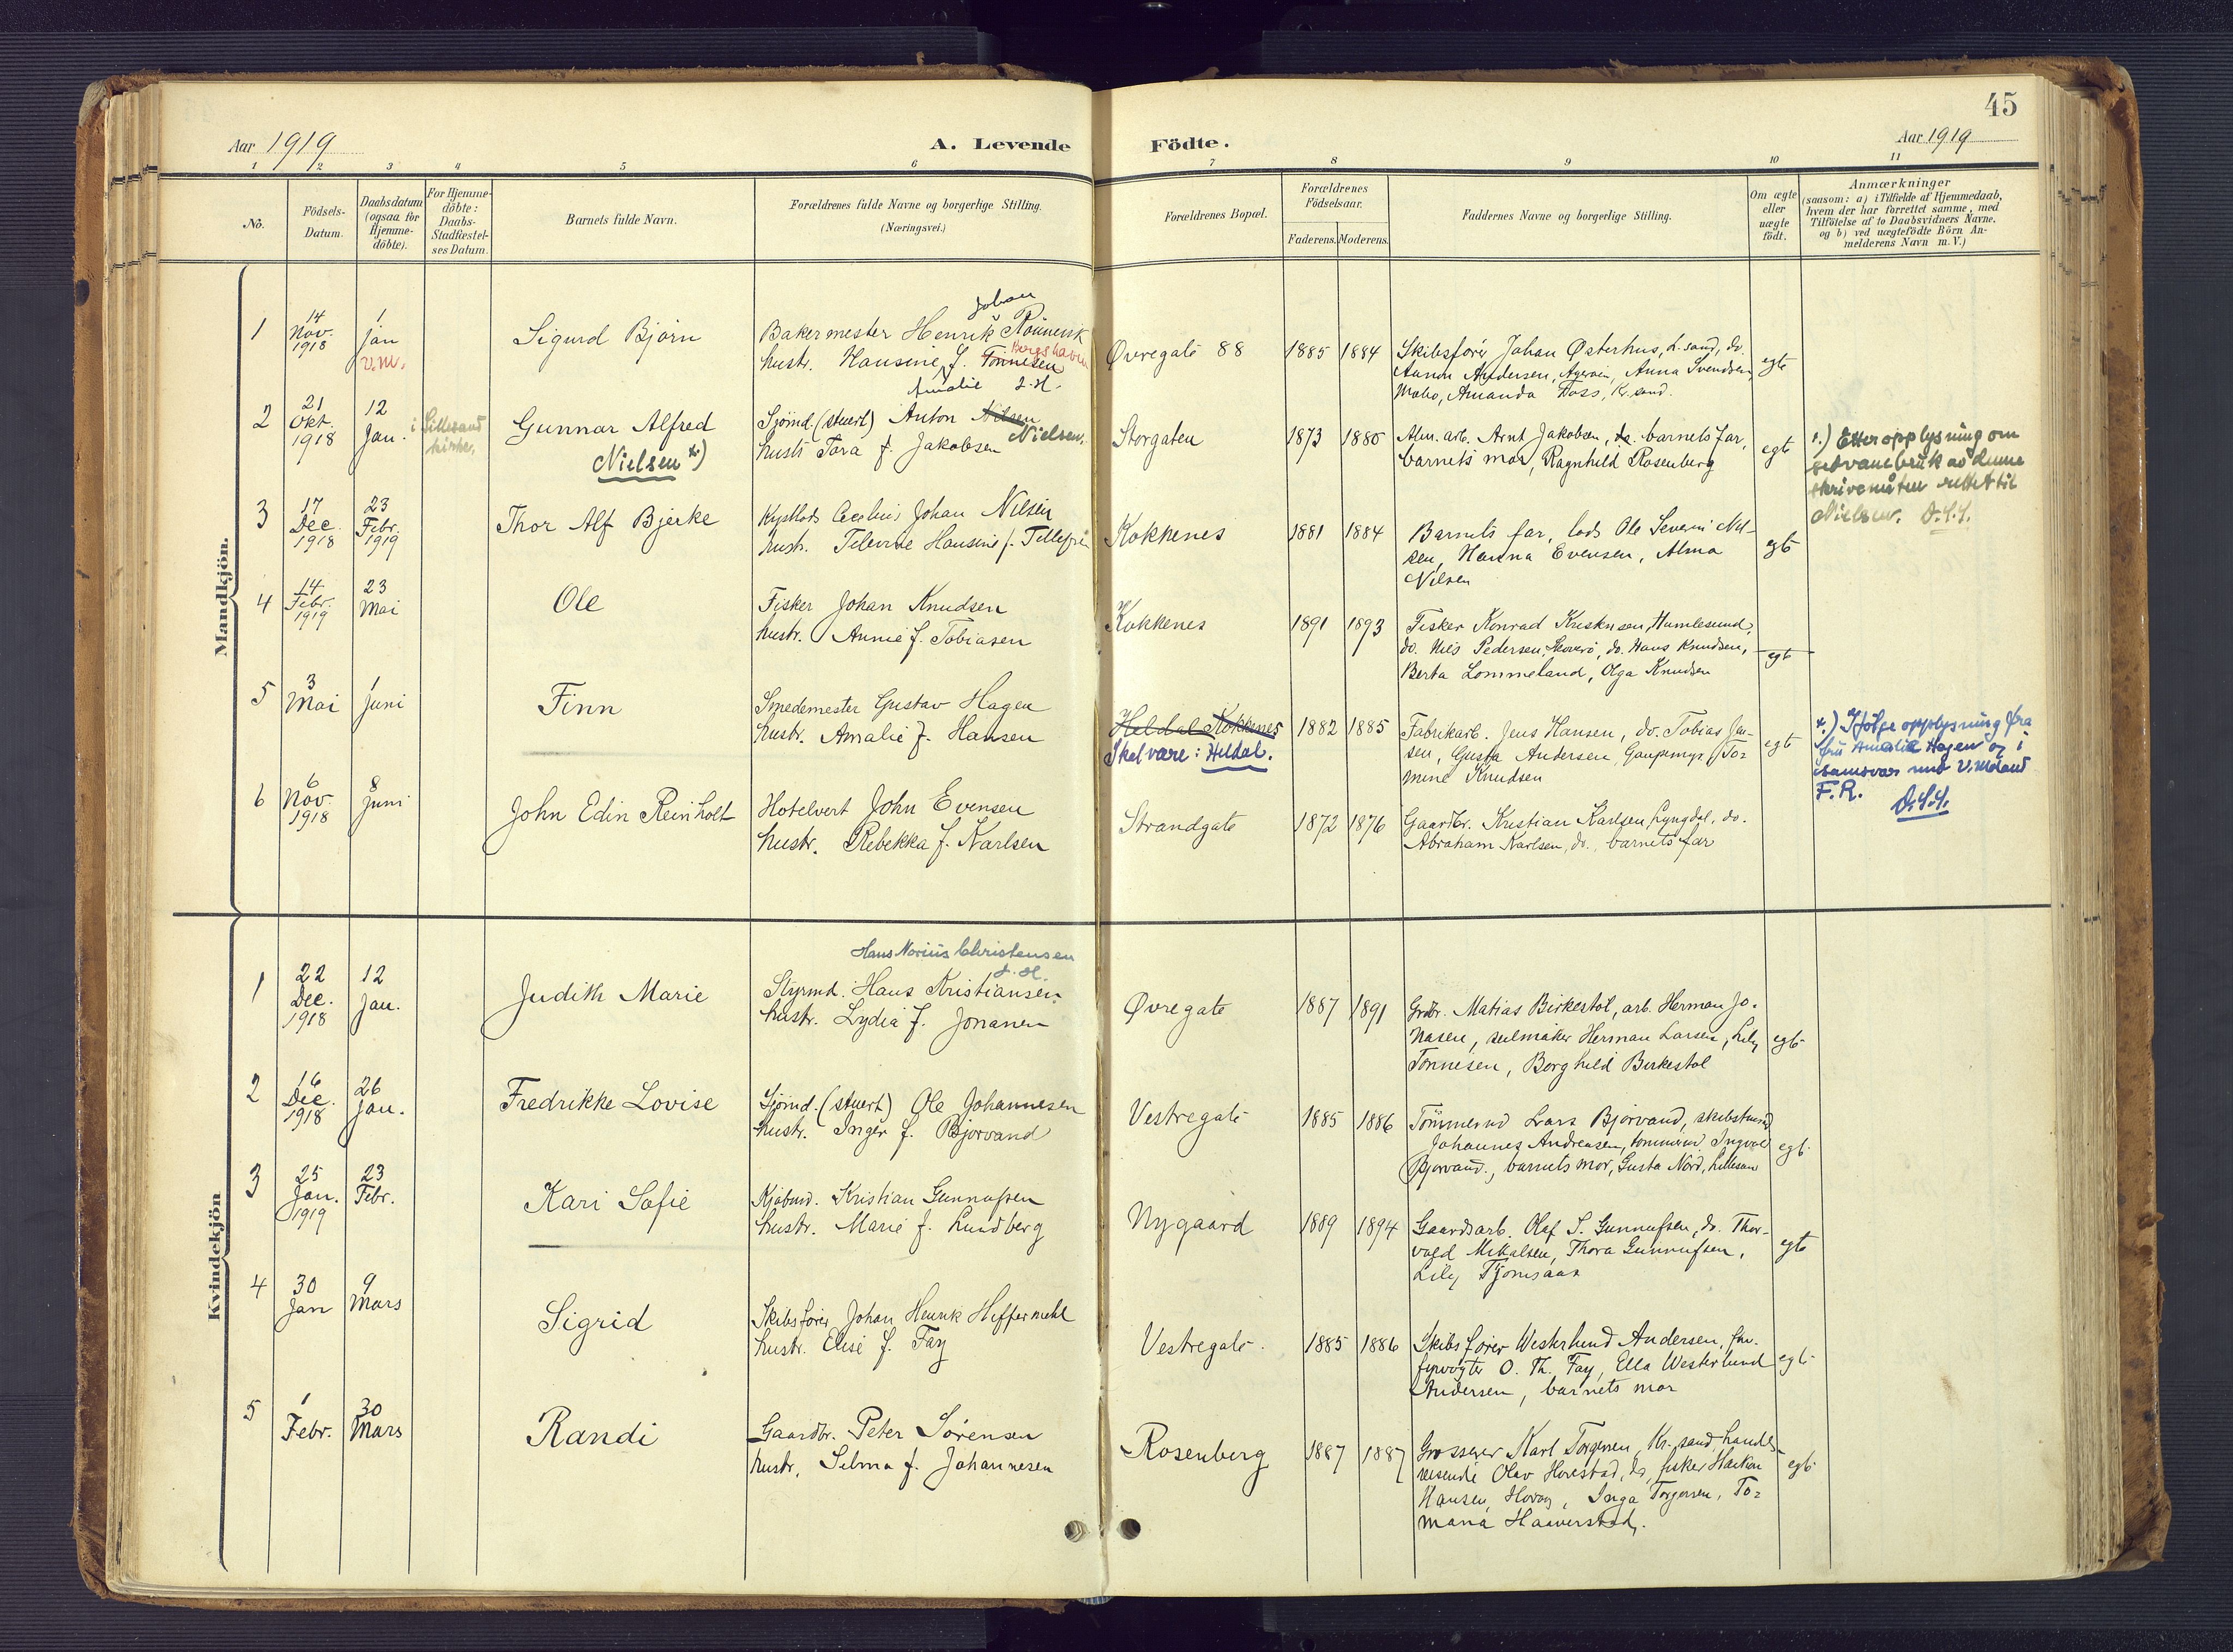 45
Aar 1919
A. Levende Födte.
Aar 1919
1 2 3 4 5 6 7 8 9 10 11
No.
Födsels-Datum.
Daabsdatum (ogsaa for Hjemmedöbte).
For Hjemmedöbte: Daabs-Stadfæstelses Datum.
Barnets fulde Navn.
Forældrenes fulde Navne og borgerlige Stilling.
(Næringsvei.)
Forældrenes Bopæl.
Forældrenes Födselsaar.
Faderens. Moderens.
Faddernes Navne og borgerlige Stilling.
Om ægte eller uægte födt.
Anmærkninger
(saasom: a) i Tilfælde af Hjemmedaab,
hvem der har forrettet samme, med
Tilföielse af to Daabsvidners Navne,
og b) ved uægtefödte Börn Anmelderens Navn m.V.)
Mandkjön.
1
14 Nov. 1918
1 Jan
v.m.
Sigurd Bjørn
Johan
Bakermester Henrik
hustr. Hansine f. Tønnesen
Amalie
Øvregate 88
1885 1884
Skibsfører Johan Østerhus, L.sand, do.
Andersen, Anna Svendsen,
Amanda Foss, Kr.sand.
egte
2
21 Okt. 1918
12 Jan.
i Lillesand kirke.
Gunnar Alfred
Nielsen *)
Sjømd. (stuert) Anton Nilsen
Nielsen.
hustr. Tora f. Jakobsen
Storgaten
1873 1880
Alm. arb. Arnt Jakobsen, barnets far,
barnets mor, Ragnhild Rosenberg
egte
*) Etter opplysning om
sedvanebruk av denne
skrivemåten rettet til
Nielsen. D.S.S.
3
17 Dec. 1918
23 Febr. 1919
Thor Alf Bjerke
Kystlods Johan Nilsen
hustr. Hansine f.
Kokkenes
1881 1884
Barnets far, lods Ole Severin Nilsen, Hanna Evensen, Alma
Nilsen
egte
4
14 Febr. 1919
23 Mai
Ole
Fisker Johan Knudsen
hustr. Annie f. Tobiasen
Kokkenes
1891 1893
Fisker Konrad Kristensen, Humlesund,
do. Nils Pedersen, do. Hans Knudsen,
Berta Lommeland, Olga Knudsen
egte
5
3 Mai
1 Juni
Finn
Smedemester Gustav Hagen
hustr. Amalie f. Hansen
Heldal Kokkenes
Skal være: Heldal.
1882 1885
Fabrikarb. Jens Hansen, do. Tobias Jensen, Gusta Andersen, Gaupemyr, Tomine Knudsen
egte
*) Ifølge opplysning fra
fru Amalie Hagen og i
samsvar med V. Moland
F.R. D.S.S.
6
6 Nov. 1918
8 Juni
John Edin Reinholt
Hotelvert John Evensen
hustr. Rebekka f. Karlsen
Strandgate
1872 1876
Gaardbr. Kristian Karlsen, Lyngdal, do.
Abraham Karlsen, do., barnets far
Kvindekjön
1
22 Dec. 1918
12 Jan.
Judith Marie
Hans Norius Christensen
Styrmd. Hans Kristiansen
hustr. Lydia f. Jonasen
Øvregate
1887 1891
Grdbr. Matias Birkestøl, arb. Herman Jonasen, seilmaker Herman Larsen, Lily
Tønnesen, Borghild Birkestøl
egte
2
16 Dec. 1918
26 Jan.
Fredrikke Lovise
Sjømd. (stuert) Ole Johannesen
hustr. Inger f. Bjorvand
Vestregate
1885 1886
Tømmermd Lars Bjorvand,
Johannes Andreasen, tømmermd. Ingvald
Bjorvand., barnets mor, Gusta Lillesand
egte
3
25 Jan. 1919
23 Febr.
Kari Sofie
Kjøbmd. Kristian Gunnufsen
hustr. Marie f. Lundberg
Nygaard
1889 1894
Gaardsarb. Olaf S. Gunnufsen, do. Thorvald Mikalsen, Thora Gunnufsen,
Lily Tjomsaas
egte
4
30 Jan
9 Mars
Sigrid
Skibsfører Johan Henrik Heffermehl
hustr. Elise f. Fay
Vestregate.
1885 1886
Skibsfører Westerlund Andersen,
fyrvogter O. Th. Fay, Ella Westerlund
Andersen, barnets mor
egte
5
1 Febr.
30 Mars
Randi
Gaardbr. Peter Sørensen
hustr. Selma f. Johannesen
Rosenberg
1887 1887
Grosserer Karl Torgersen, Kr.sand, handelsreisende Olav do, fisker Haakon
Hansen, Inga Torgersen, Tomana
egte